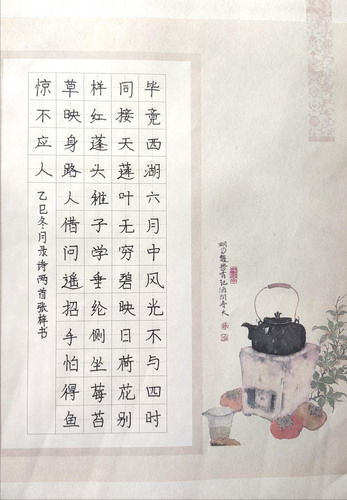 毕竟西湖六月中风光不与四时
同接天莲叶无穷碧映日荷花别
样红蓬头稚子学垂纶侧坐莓苔
草映身路人借问遥招手怕得鱼
惊不应人 乙巳冬月录诗两首张梓书